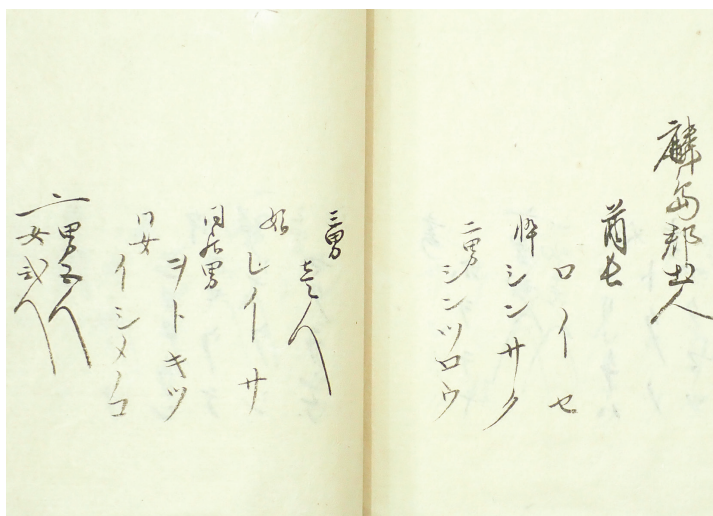 麟島郡土人
酋長
ロイセ
悴
シンサク
二男
シンツロウ
三男
壱人
レイサ
同居男
ヲトキツ
同女
イシメノコ
〆男五人
女弐人